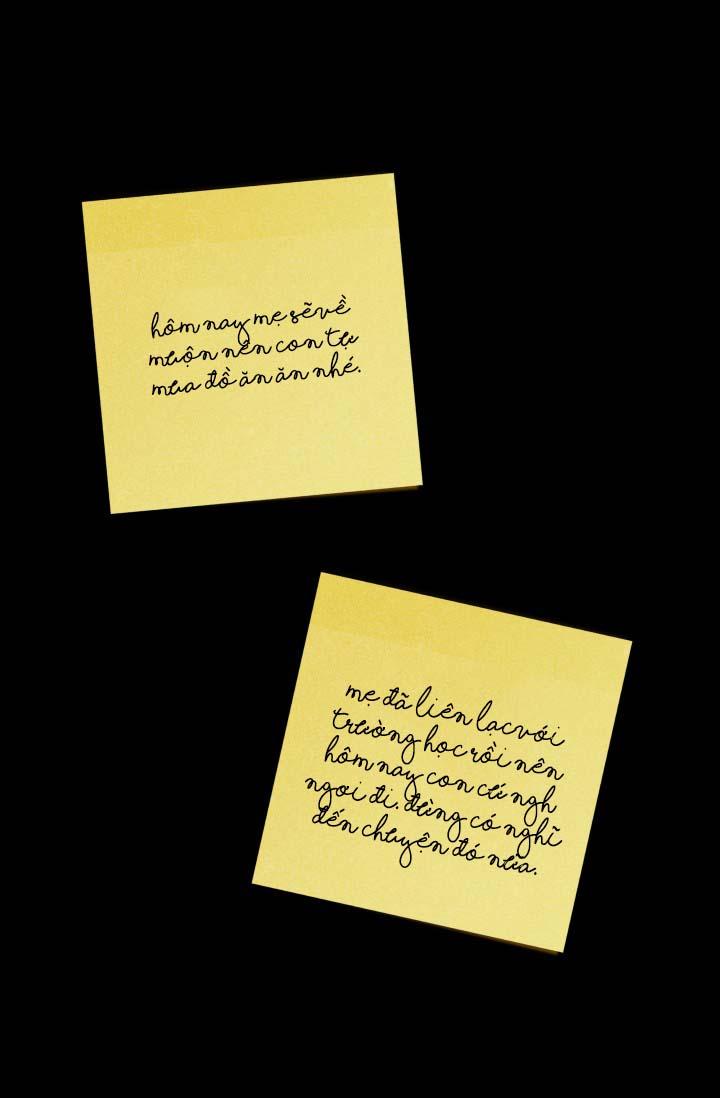 hôm nay mẹ sẽ về
muộn nên con tự
mua đồ ăn ăn nhé.
mẹ đã liên lạc với
trường học rồi nên
hôm nay con cứ ngh
ngơi đi. đừng có nghĩ
đến chuyện đó nữa.